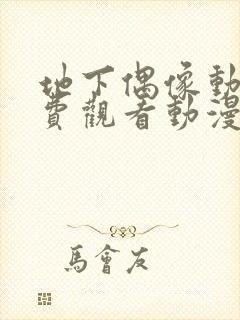 地下偶像動
費觀看動漫
馬會友